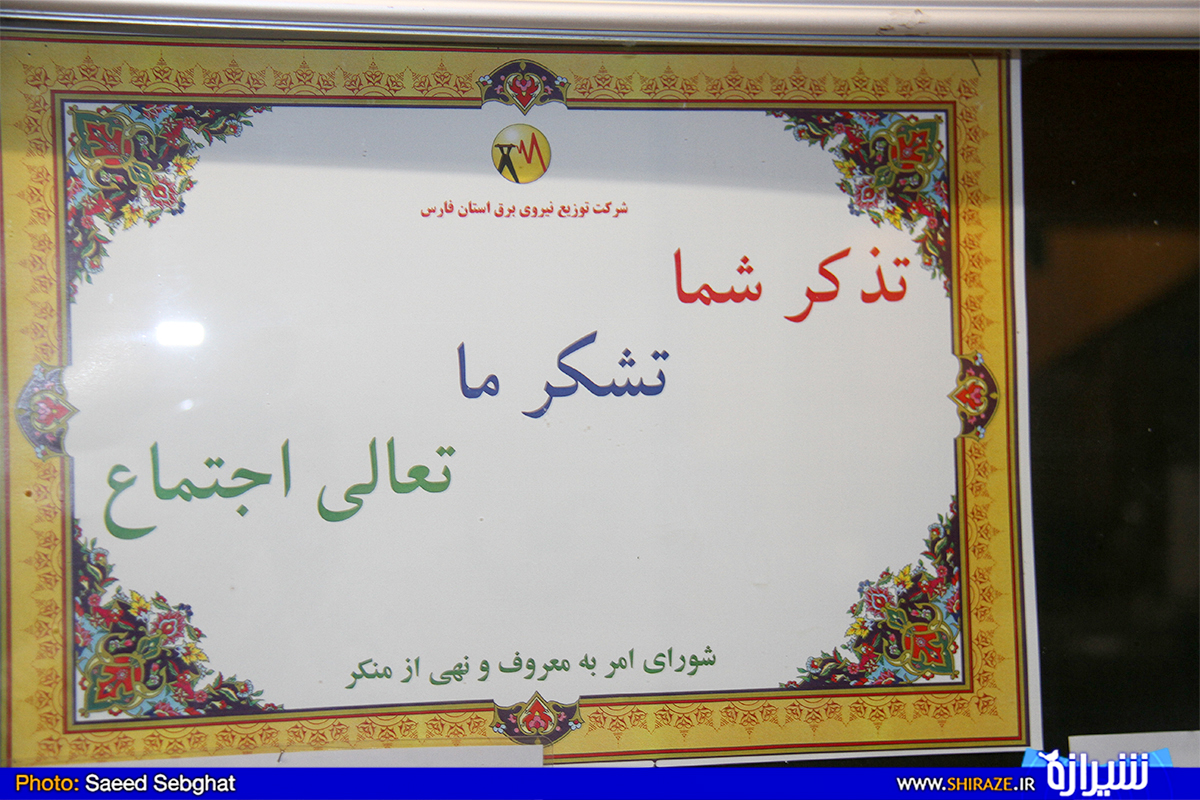 شرکت توزیع نیروی برق استان فارس
تذکر شما
تشکر ما
تعالی اجتماع
شورای امر به معروف و نهی از منکر
Photo: Saeed Sebghat
WWW.SHIRAZE.IR
شیرازه